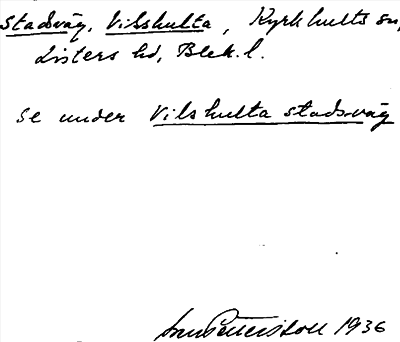 Stadsväg, Vilshulta, Kyrkhults sn,
Listers hd, Blek. l.
se under Vilshulta stadsväg
Pettersson 1936